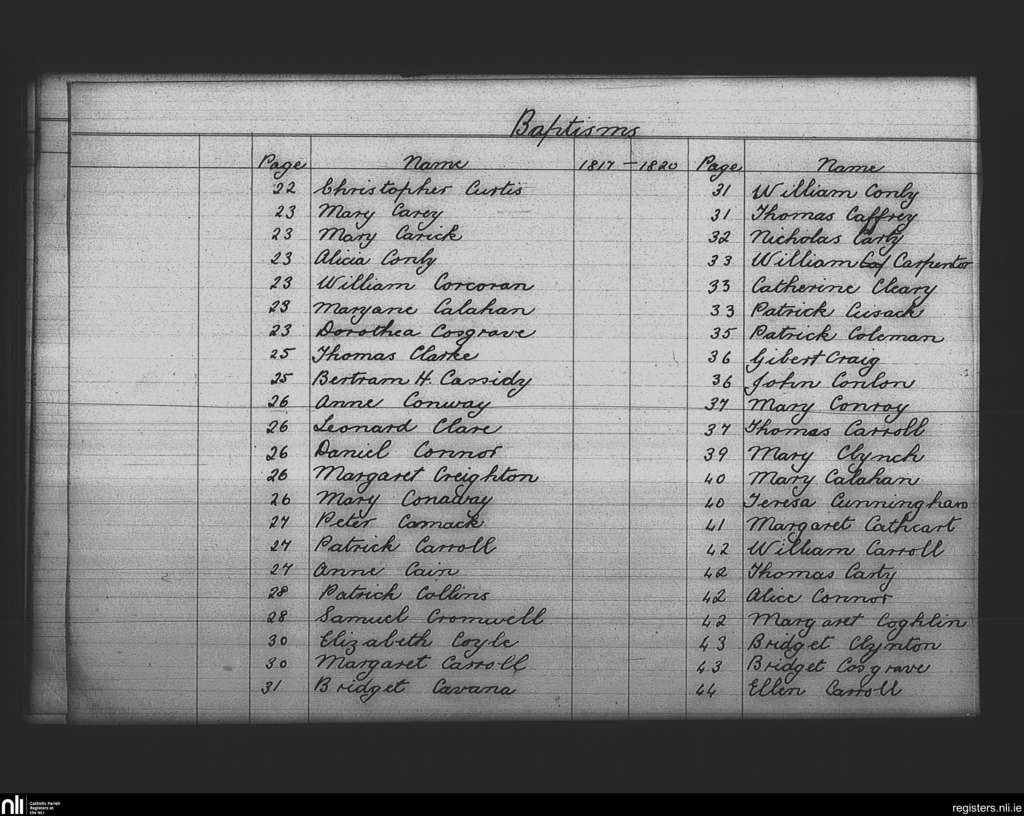 Baptisms
Page Name 1817 – 1820 Page Name
22 Christopher Curtis 31 William Conly
23 Mary Carey 31 Thomas Caffrey
23 Mary Carick 32 Nicholas Carty
23 Alicia Conly 33 William Caf Carpentor
23 William Corcoran 33 Catherine Cleary
23 Maryane Calahan 33 Patrick Cusack
23 Dorothea Cosgrave 35 Patrick Coleman
25 Thomas Clarke 36 Gibert Craig
25 Bertram H. Cassidy 36 John Conlon
26 Anne Conway 37 Mary Conroy
26 Leonard Clare 37 Thomas Carroll
26 Daniel Connor 39 Mary Clynch
26 Margaret Creighton 40 Mary Calahan
26 Mary Conaway 40 Teresa Cunningham
27 Peter Comack 41 Margaret Cathcart
27 Patrick Carroll 42 William Carroll
27 Anne Cain 42 Thomas Carty
28 Patrick Collins 42 Alice Connor
28 Samuel Cromwell 42 Margaret Coghlin
30 Elizabeth Coyle 43 Bridget Clynton
30 Margaret Carroll 43 Bridget Cosgrave
31 Bridget Cavana 44 Ellen Carroll
nli Catholic Parish Registers at the NLI registers.nli.ie